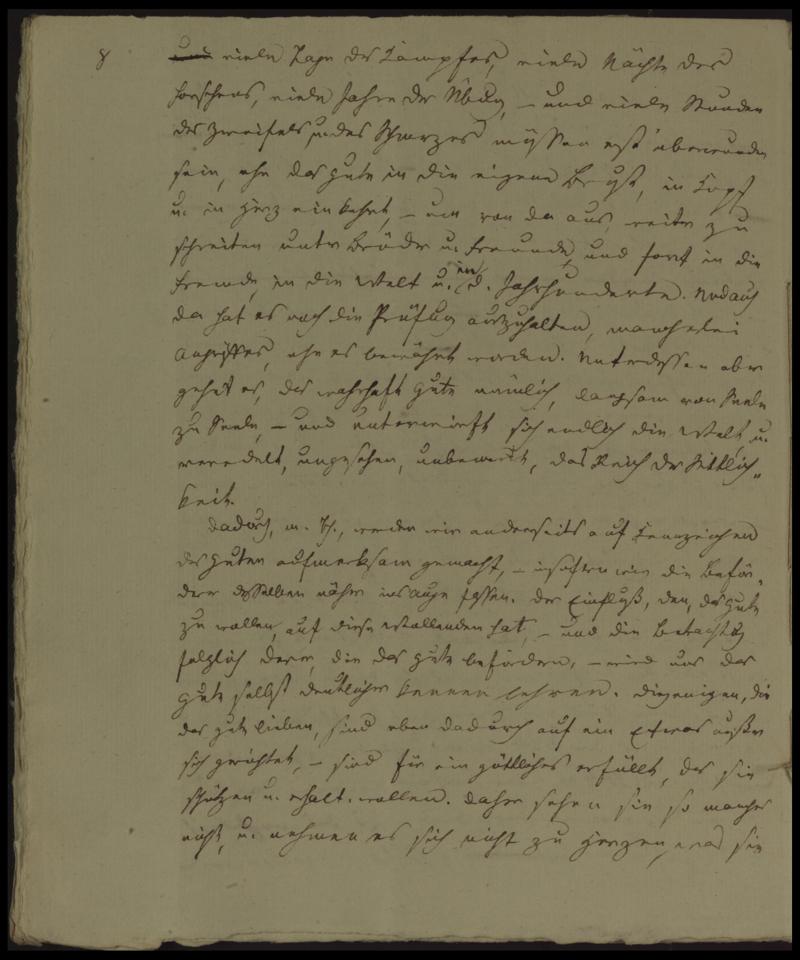 8
viele Tage des Kampfes, viele Nächte des
Forschens, viele Jahre der Übung, – und viele Stunden
des Zweifels u. des Schmerzes müssen erst überwunden
sein, ehe das Gute in die eigene Brust, in Kopf
u. in Herz einkehrt, – um von da aus, weiter zu
schreiten unter Brüder u. Freunde, und fort in die
Fremde, in die Welt u. in d. Jahrhunderte. Und auch
da hat es noch die Prüfung auszuhalten, mancherlei
Angriffes, ehe es bewährt worden. Unterdessen aber
gehet es, das wahrhaft Gute nämlich, langsam von Seele
zu Seele, – und unterwirft sich endlich die Welt, u.
veredelt, ungesehen, unbemerkt, das Reich der Sittlich„
keit.
Dadurch, m. Th., werden wir anderseits auf Kennzeichen
des Guten aufmerksam gemacht, – insofern wir die Beför„
derer desselben näher ins Auge fassen. Der Einfluß, den, das Gute
zu wollen, auf diese Wollenden hat, – und die Betrachtung
folglich derer, die das Gute befördern, – wird uns das
Gute selbst deutlicher kennen lehren. Diejenigen, die
das Gute lieben, sind eben dadurch auf ein Etwas außer
sich gerichtet, – sind für ein göttliches erfüllt, das sie
schützen u. erhalt. wollen. Daher sehen sie so manches
nicht, u. nehmen es sich nicht zu Herzen, was sie